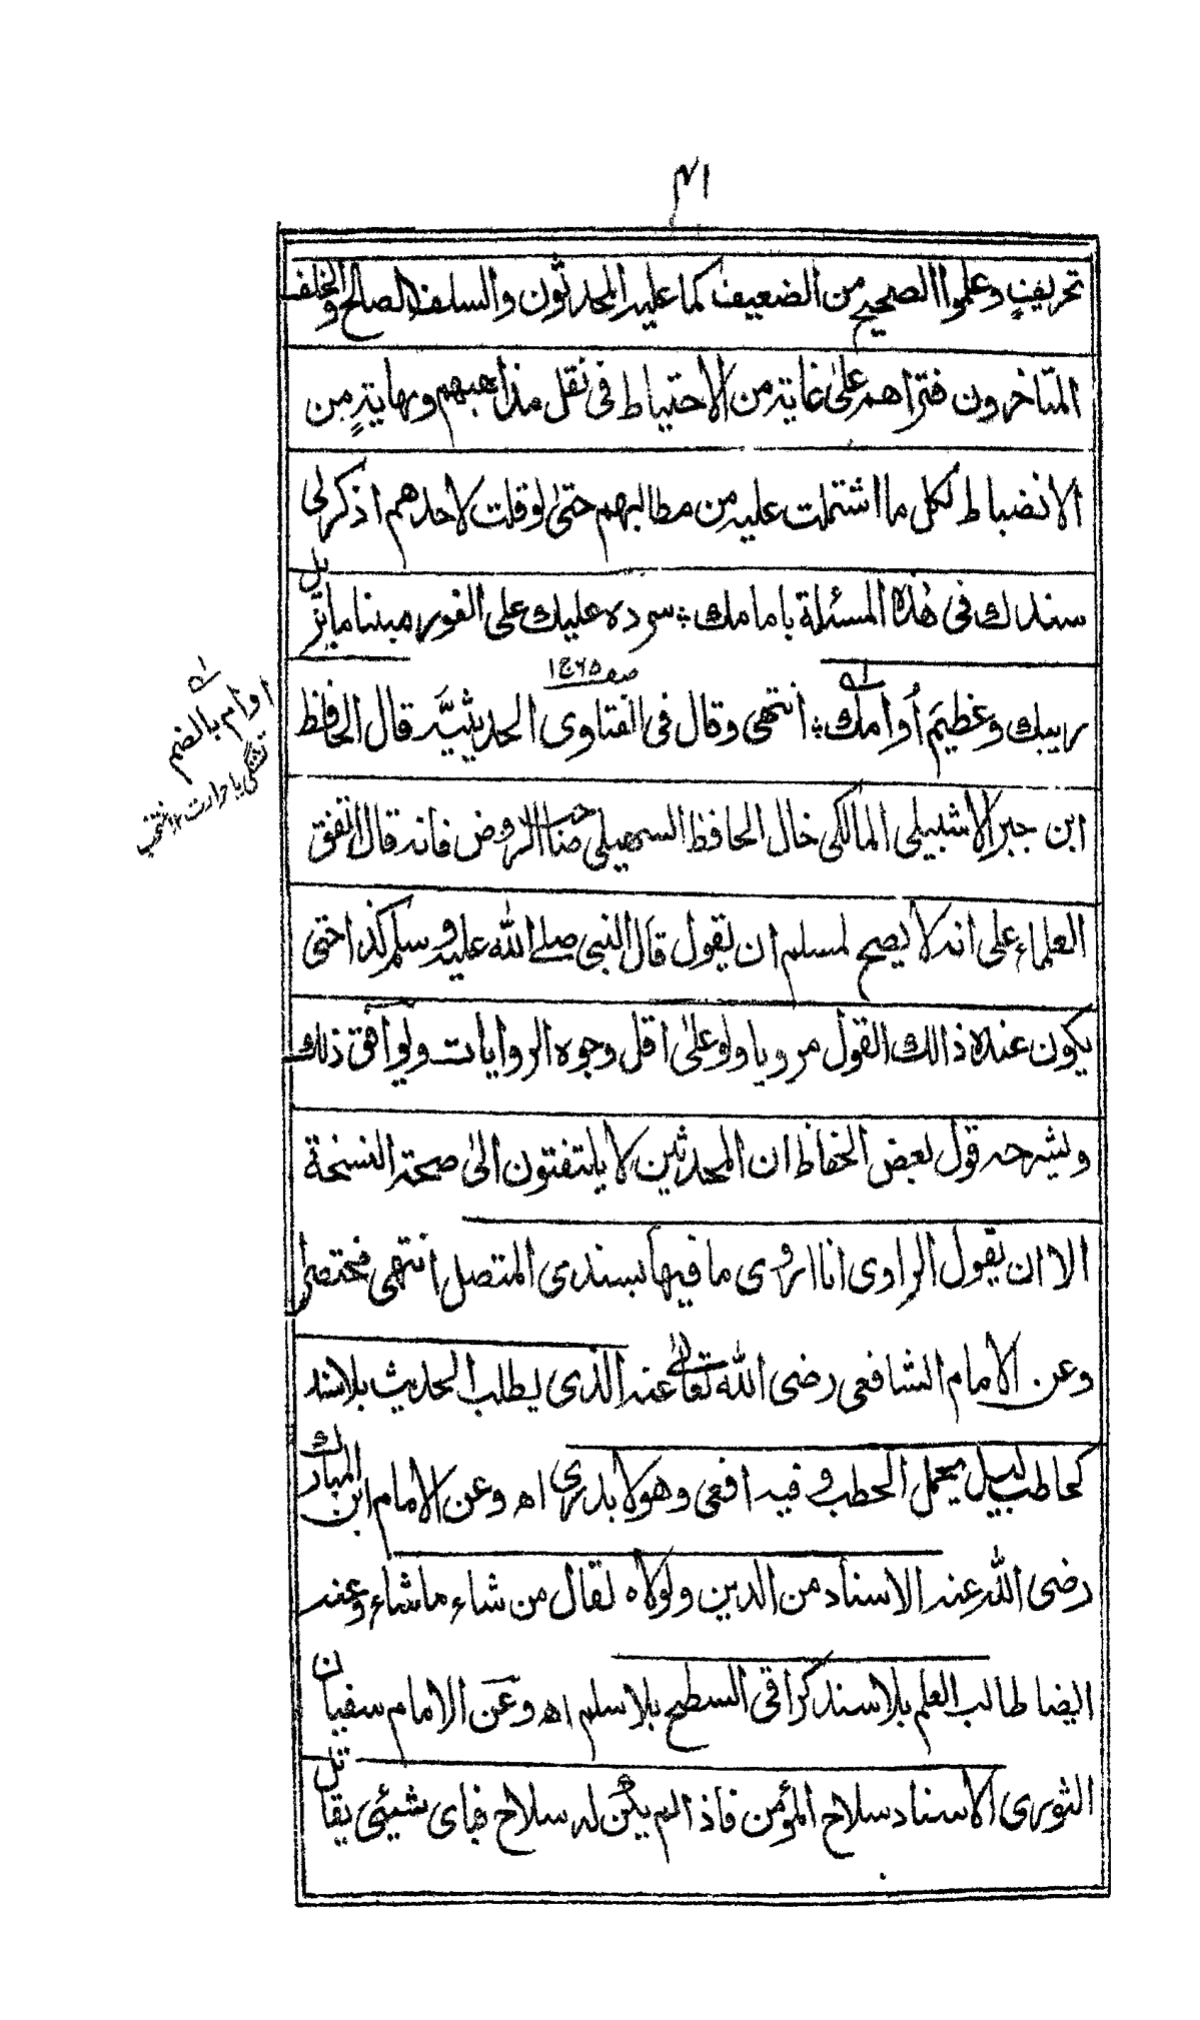 ۴۱
تحريفٍ وعلموا الصحيح من الضعيف كما عليه المحدثون والسلف الصالح والخلف
المتاخرون فتراهم على غاية من الاحتياط فى نقل مذاهبهم ونهايةٍ من
الانضباط لكل ما اشتملت عليه من مطالبهم حتى لو قلت لاحدهم اذكر لى
سندك فى هذه المسئلة بامامك ؛ سرده عليك على الفور مبينا مايزيل
ريبك وعظيمَ أُوامك ؛ انتهى وقال فى الفتاوى الحديثيَّه قال الحافظ
صفـ ۶۵ ج۱
ابن جبر الاشبيلى المالكى خال الحافظ السهيلى صاحب الروض فانه قال اتفق
العلماء على انه لا يصح لمسلم ان يقول قال النبى صلے الله عليه وسلم كذا حتى
يكون عنده ذالك القول مرويا ولو على اقل وجوه الروايات ويوافق ذلك
ويشرحه قول بعض الحفاظ ان المحدثين لا يلتفتون الى صحة النسخة
الا ان يقول الراوى انا اروى ما فيها بسندى المتصل انتهى مختصرا
وعن الامام الشافعى رضى الله تعالى عنه الذى يطلب الحديث بلا سند
كحاطب ليل يحمل الحطب وفيه افعى وهو لا يدرى اھ وعن الامام ابن المبارك
رضى الله عنه الاسناد من الدين ولولاه لقال من شاء ما شاء وعنه
ايضا طالب العلم بلا سند كراقى السطح بلا سلم اھ وعن الامام سفيان
الثورى الاسناد سلاح المؤمن فاذا لم يكن له سلاح فباى شيئى يقاتل
اوام بالضم
تشنگى يا حرارت ۱۲ منتخب